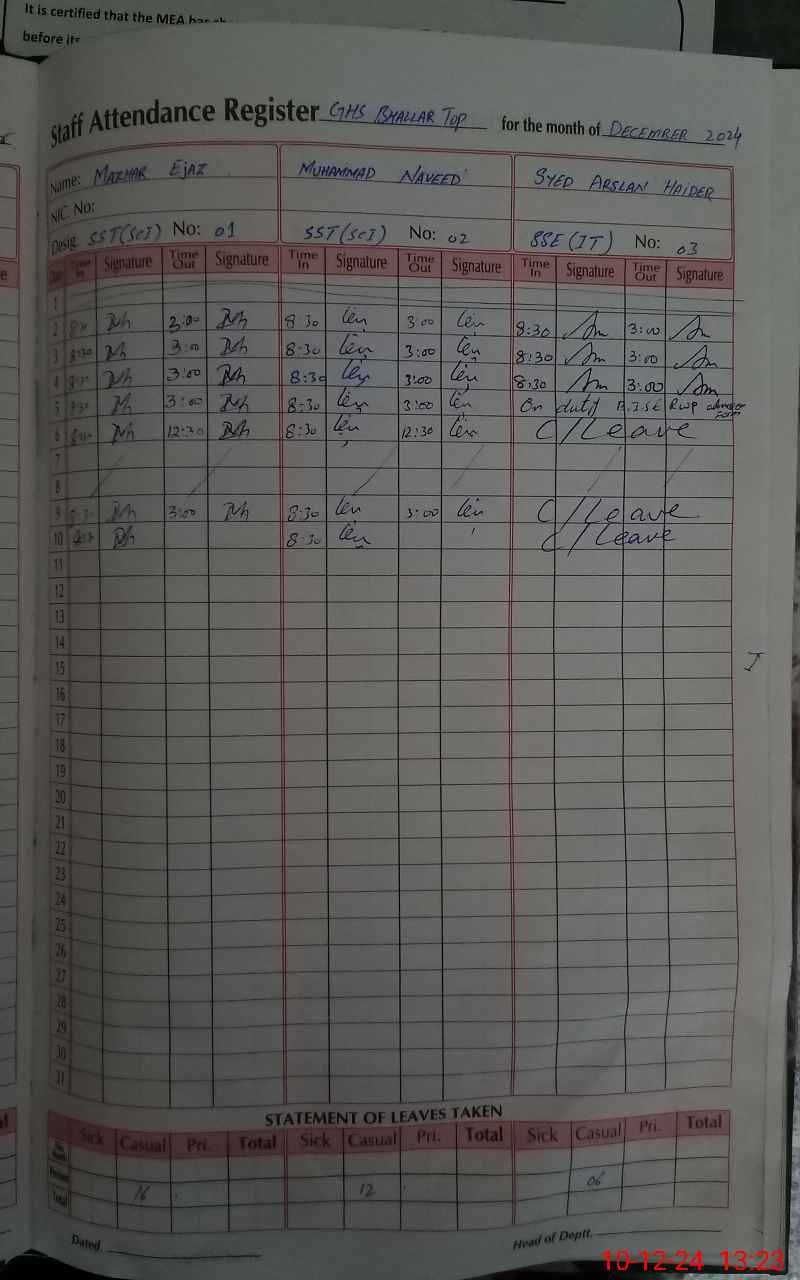 It is certified that the MEA has
before its
Staff Attendance Register GHS BHALLAR TOP for the month of DECEMBER 2024
Name: MAZHAR EJAZ MUHAMMAD NAVEED SYED ARSLAN HAIDER
NIC. No:
Desig. SST(SCI) No: 01 SST(SCI) No: 02 SSE (IT) No: 03
Date Time In Signature Time Out Signature Time In Signature Time Out Signature Time In Signature Time Out Signature
1
2 8:30 3:00 8:30 3:00 8:30 3:00
3 8:30 3:00 8:30 3:00 8:30 3:00
4 8:30 3:00 8:30 3:00 8:30 3:00
5 8:30 3:00 8:30 3:00 On duty B.I.S.E RWP
6 8:30 12:30 8:30 12:30 C/Leave
7
8
9 8:30 3:00 8:30 3:00 C/Leave
10 8:30 C/Leave
11
12
13
14
15
16
17
18
19
20
21
22
23
24
25
26
27
28
29
30
31
STATEMENT OF LEAVES TAKEN
Sick Casual Pri. Total Sick Casual Pri. Total Sick Casual Pri. Total
Total 16 12 06
Dated Head of Deptt.
10-12-24 13:23